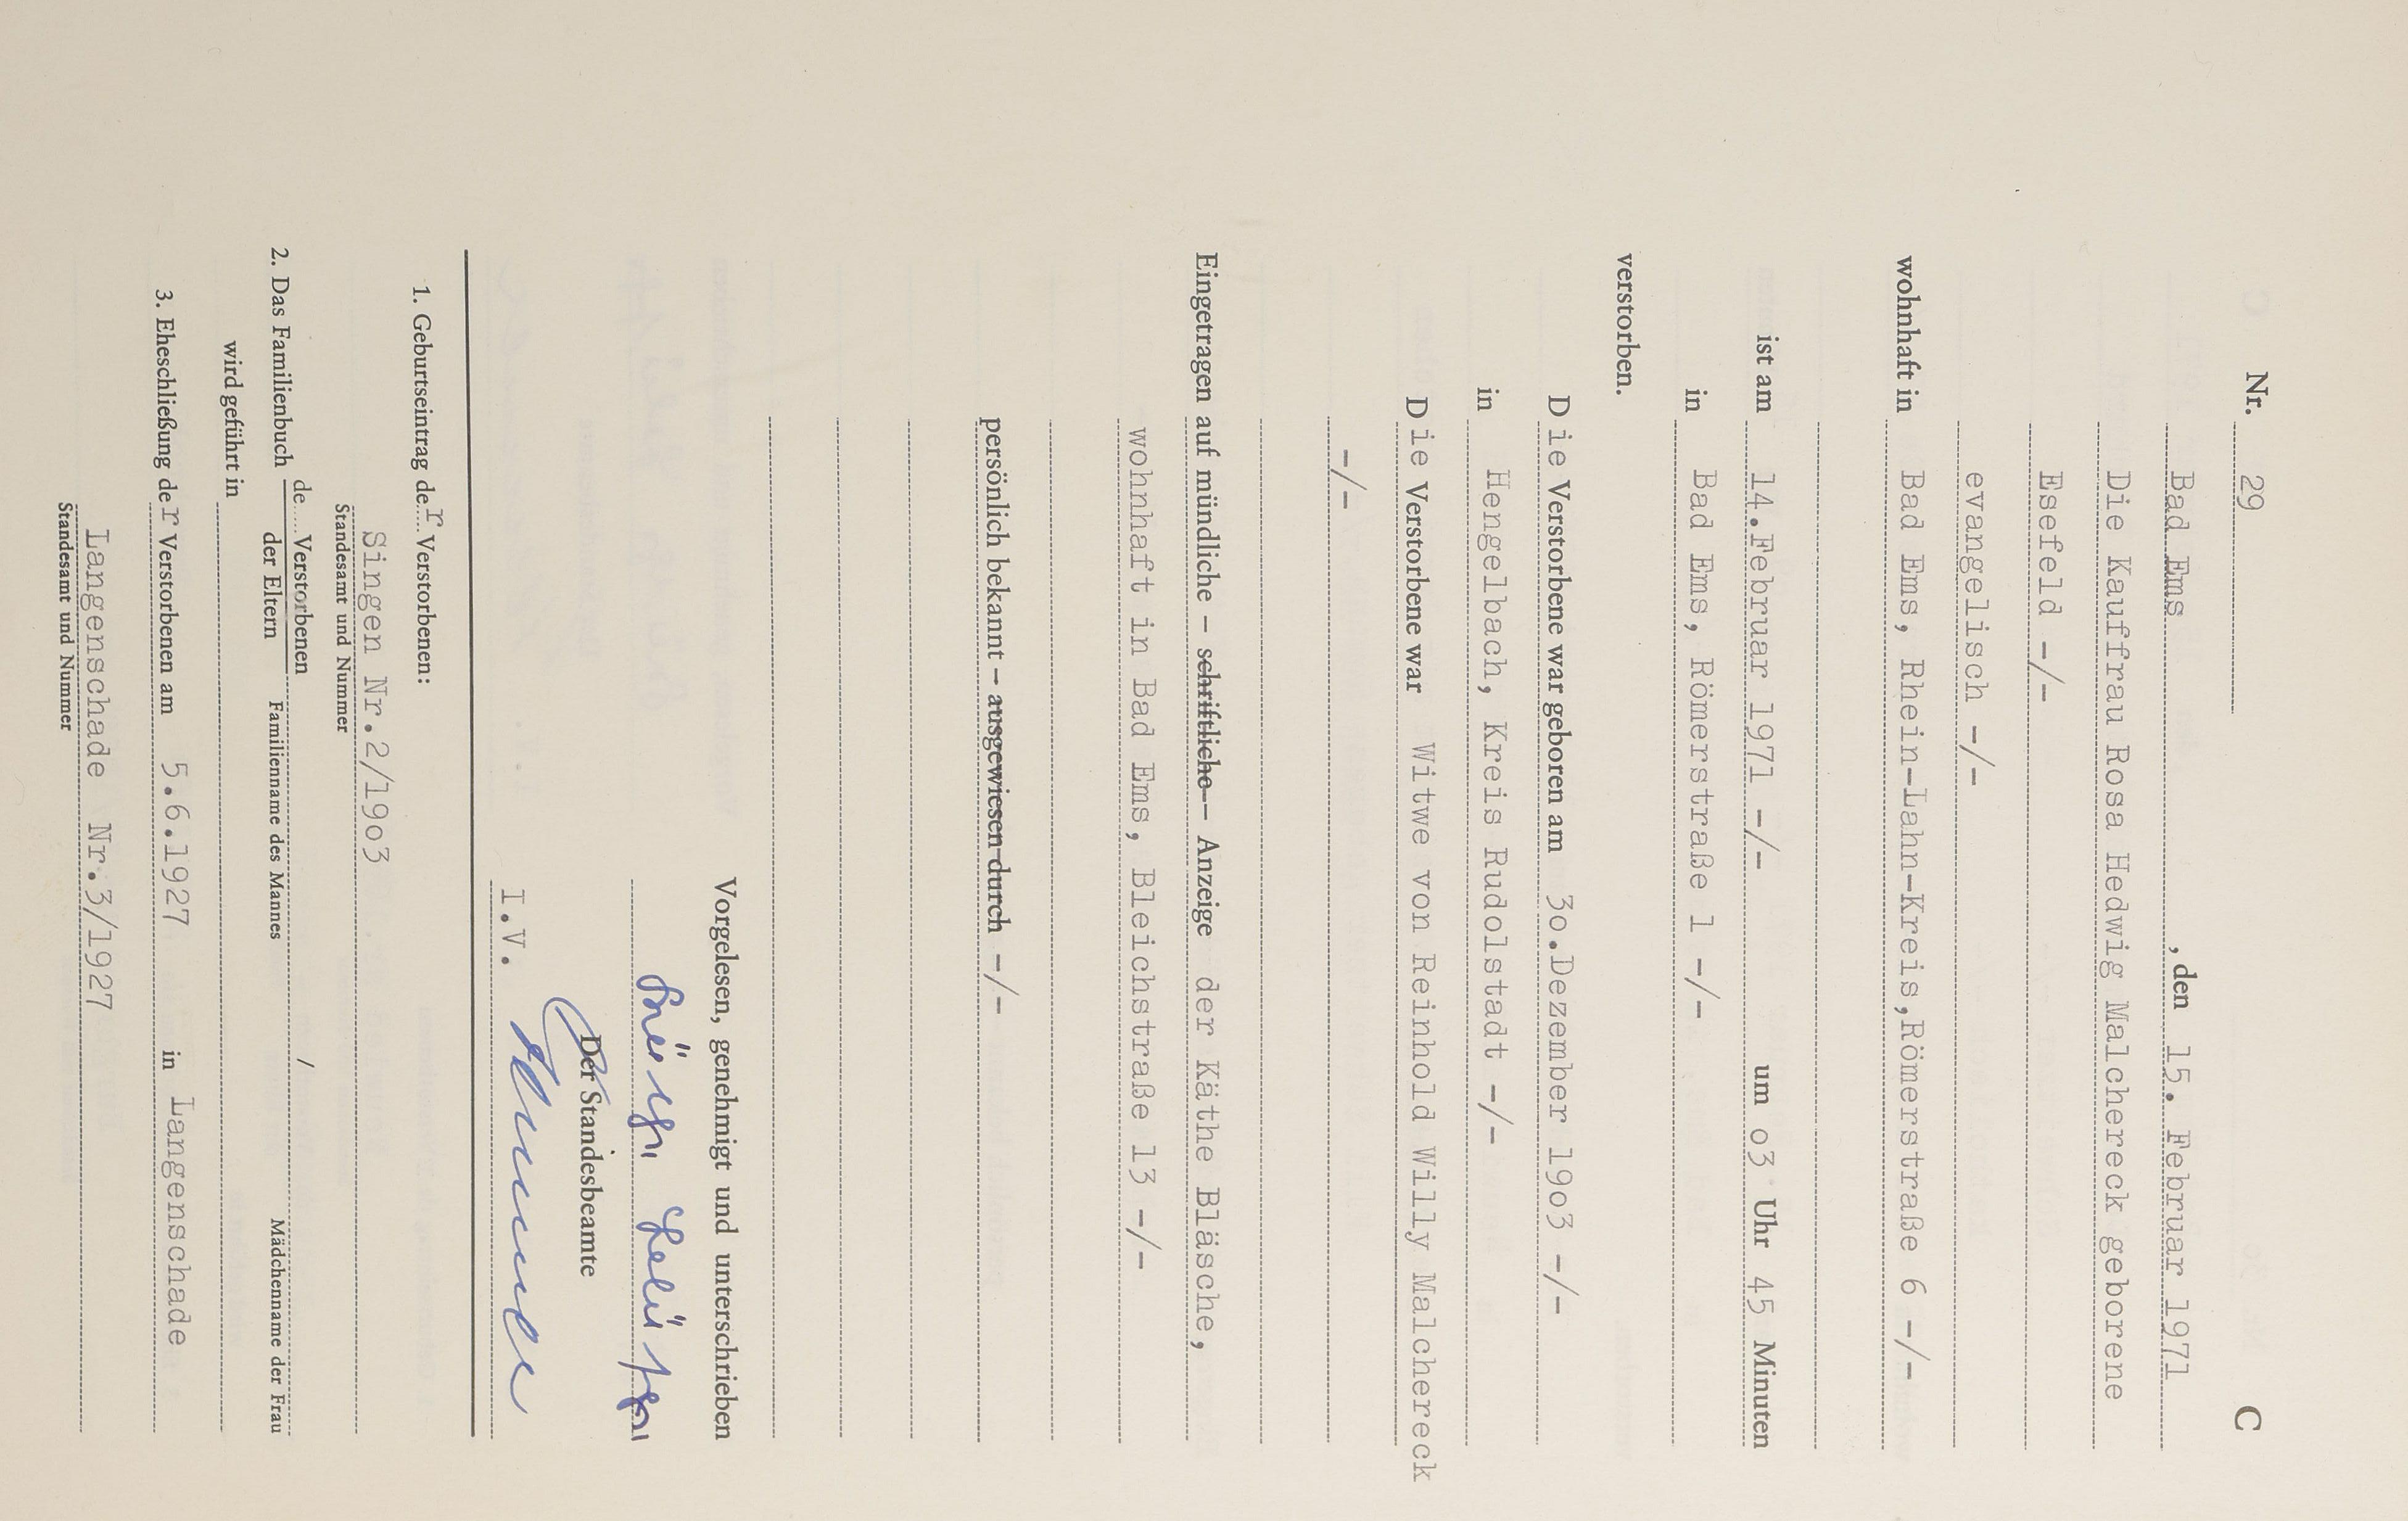 Nr. 29 C
Bad Ems , den 15. Februar 1971
Die Kauffrau Rosa Hedwig Malchereck geborene
Esefeld -/-
evangelisch -/-
wohnhaft in Bad Ems, Rhein-Lahn-Kreis,Römerstraße 6 -/-
ist am 14.Februar 1971 -/- um o3 Uhr 45 Minuten
in Bad Ems, Römerstraße 1 -/-
verstorben.
Die Verstorbene war geboren am 3o.Dezember 19o3 -/-
in Hengelbach, Kreis Rudolstadt -/-
Die Verstorbene war Witwe von Reinhold Willy Malchereck
-/-
Eingetragen auf mündliche – schriftliche – Anzeige der Käthe Bläsche,
wohnhaft in Bad Ems, Bleichstraße 13 -/-
persönlich bekannt – ausgewiesen durch -/-
Vorgelesen, genehmigt und unterschrieben
Der Standesbeamte
I.V.
1. Geburtseintrag der Verstorbenen:
Singen Nr.2/19o3
Standesamt und Nummer
2. Das Familienbuch de.... Verstorbenen /
der Eltern Familienname des Mannes Mädchenname der Frau
wird geführt in
3. Eheschließung der Verstorbenen am 5.6.1927 in Langenschade
Langenschade Nr.3/1927
Standesamt und Nummer